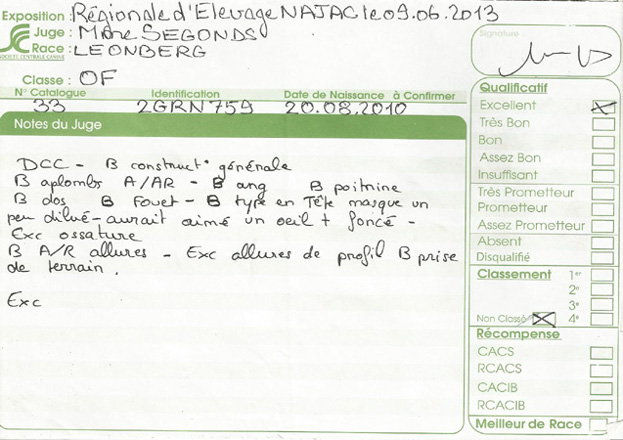 Exposition : Régionale d'Elevage NAJAC le 09.06.2013
Juge : Mme SEGONDS
Race : LEONBERG
SOCIETE CENTRALE CANINE
Classe : OF
N° Catalogue Identification Date de Naissance à Confirmer
33 2GRN759 20.08.2010
Notes du Juge
DCC - B construct° générale
B aplombs A/AR - B ang B poitrine
B dos B Fouet - B type en Tête masque un
peu dilué - aurait aimé un oeil + foncé -
Exc ossature
B A/R allures - Exc allures de profil B prise
de terrain.
Exc
Signature
Qualificatif
Excellent
Très Bon
Bon
Assez Bon
Insuffisant
Très Prometteur
Prometteur
Assez Prometteur
Absent
Disqualifié
Classement 1er
2e
3e
Non Classé 4e
Récompense
CACS
RCACS
CACIB
RCACIB
Meilleur de Race